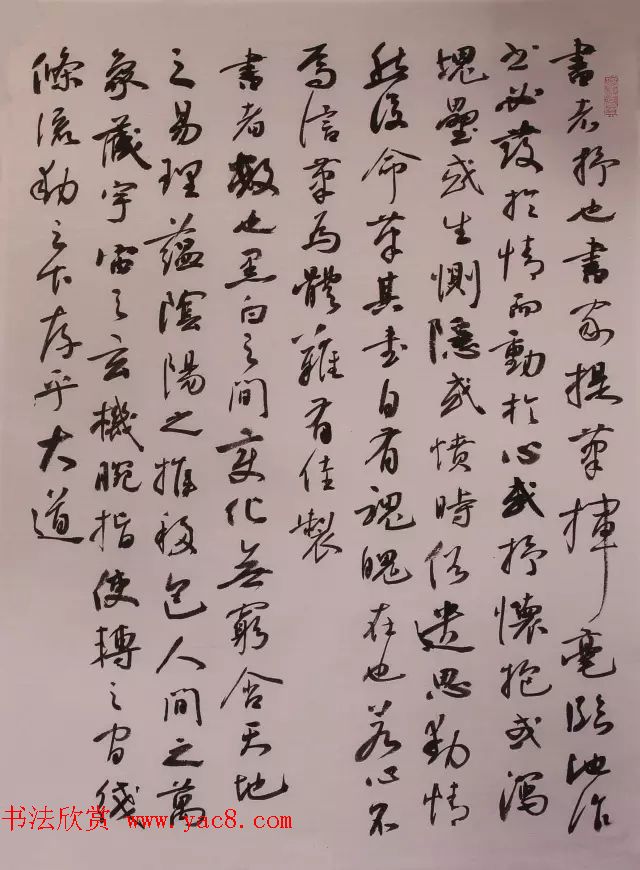 書者抒也書家提筆揮毫臨池作
書必發於情而動於心或抒懷抱或瀉
塊壘或生惻隱或憤時俗遣思動情
然後命筆其書自有魂魄在也若心不
焉信筆為體難有佳製
書者數也黑白之間變化無窮含天地
之易理蘊陰陽之推移包人間之萬
象藏宇宙之玄機腕指使轉之線
條流動之下存乎大道
书法欣赏 www.yac8.com